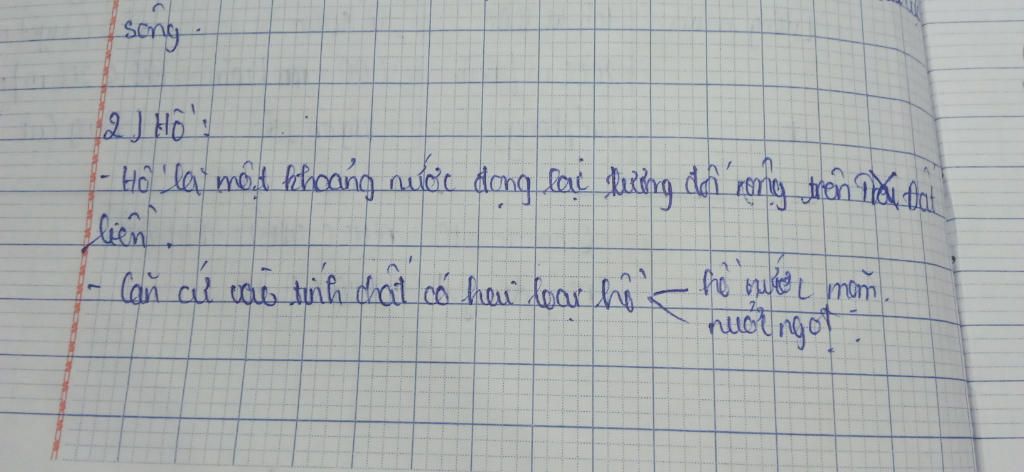 sông.
2) Hồ:
- Hồ là một khoảng nước đọng lại tương đối rộng trên đất
liền.
- Căn cứ vào tính chất có hai loại hồ < hồ nước mặn.
nước ngọt.